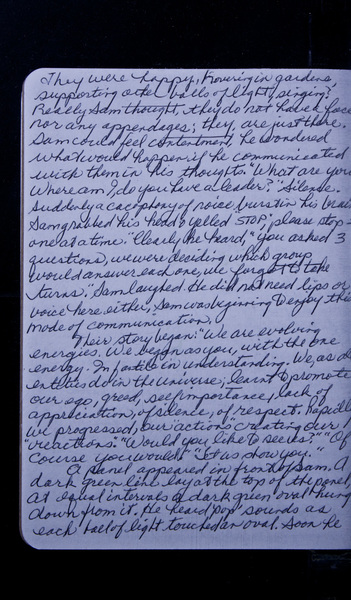 They were happy, hovering in gardens,
supporting other balls of light, singing?
Really Sam thought, they do not have a face
nor any appendages; they, are just there.
Sam could feel contentment, he wondered
what would happen if he communicated
with them in his thoughts. "What are you
Where am I, do you have a leader?" Silence.
Suddenly a cacophony of noise burst in his brain
Sam grabbed his head & yelled STOP "please stop -
one at a time." Clearly he heard, "you asked 3
questions, we were deciding which group
would answer each one, we forgot to take
turns." Sam laughed. He did not need lips or
voice here either, Sam was beginning to enjoy this
mode of communication.
Their story began: "We are evolving
energies. We began as you, with the one
energy. Infantile in understanding. We, as do
entities do in the universe; learnt to promote
our ego, greed, self importance, lack of
appreciation, of silence, of respect. Rapidly
we progressed, our "actions" creating our
"reactions." "Would you like to see us?" "Of
course you would." "Let us show you."
A panel appeared in front of Sam. A
dark green line lay at the top of the panel,
at equal intervals a dark green oval hung
down from it. He heard 'pop' sounds as
each ball of light touched an oval. Soon he